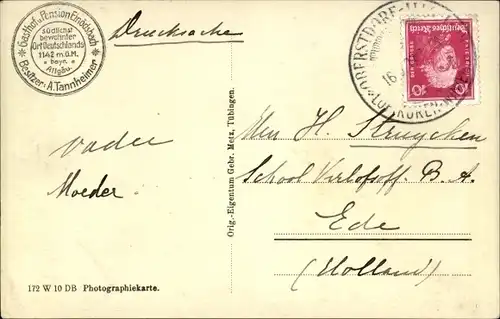 Gasthof u. Pension Einödsbach
südlichst
bewohnter
Ort Deutschlands
1142 m.ü.M.
bayr.
Allgäu.
Besitzer: A. Tannheimer
Drucksache
OBERSTDORF
16
LUFTKURORT
Deutsches Reich
10 10
Vader
Moeder.
Orig.-Eigentum Gebr. Metz, Tübingen.
H. Struycken
School Verlofsoff. B. A.
Ede
(Holland)
172 W 10 DB Photographiekarte.